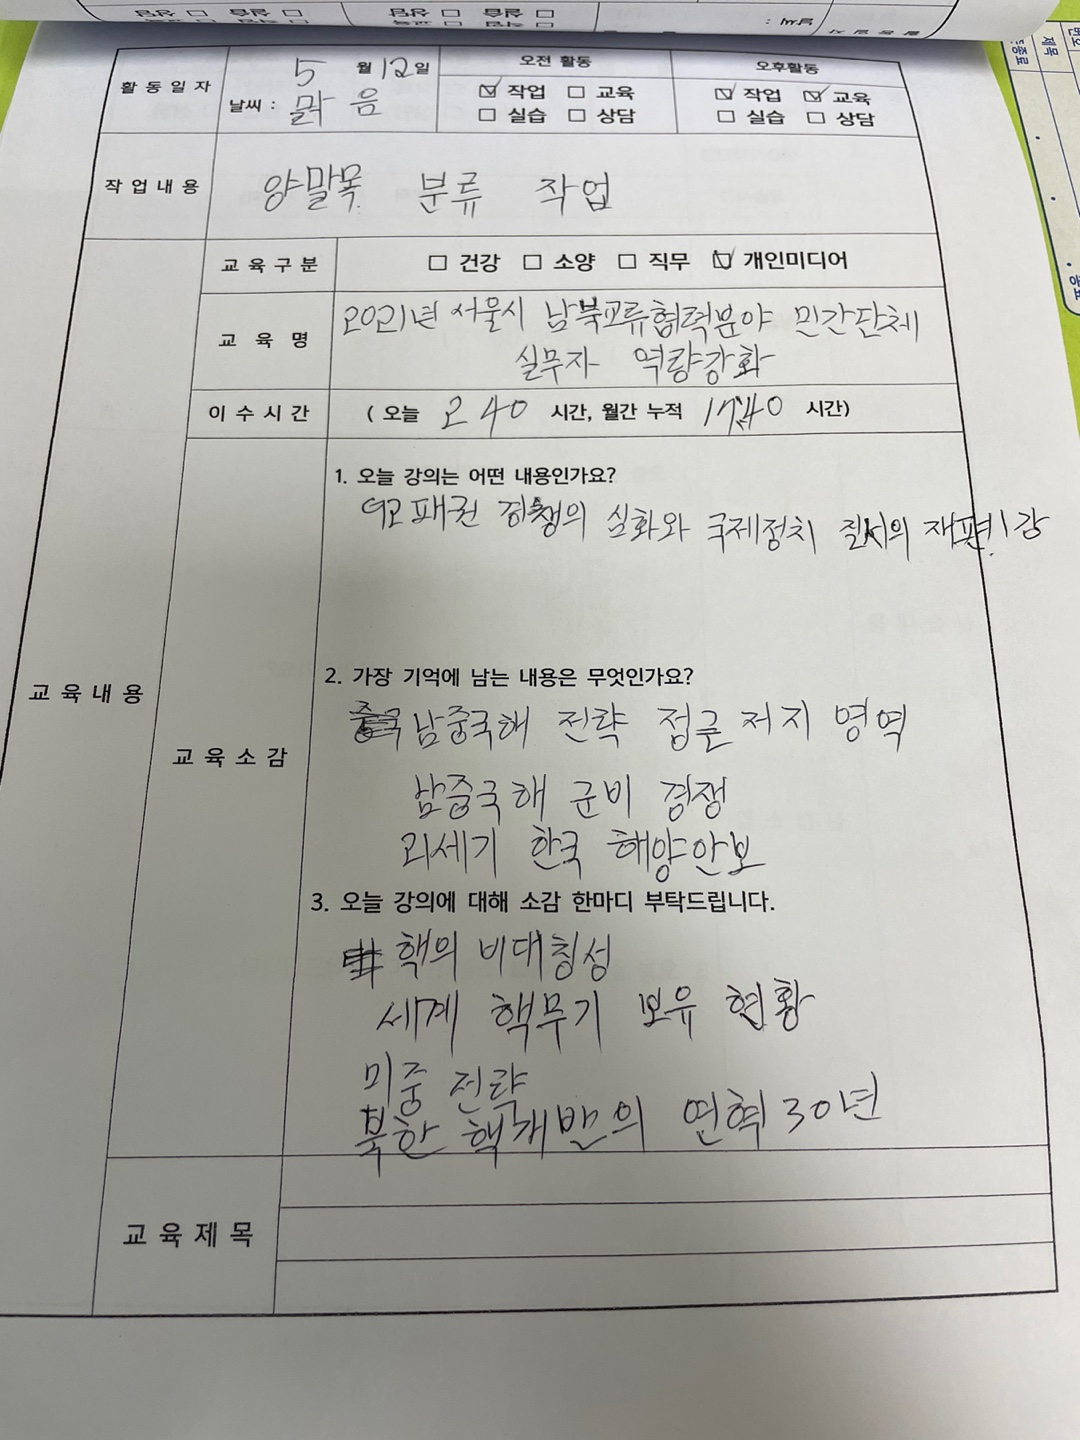 활동일자
5 월 12일
날씨 : 맑음
오전 활동
☑ 작업 ☐ 교육
☐ 실습 ☐ 상담
오후활동
☑ 작업 ☑ 교육
☐ 실습 ☐ 상담
작업내용
양말목 분류 작업
교육내용
교육구분
☐ 건강 ☐ 소양 ☐ 직무 ☑ 개인미디어
교육명
2021년 서울시 남북교류협력분야 민간단체
실무자 역량강화
이수시간
( 오늘 2 40 시간, 월간 누적 17:40 시간)
교육소감
1. 오늘 강의는 어떤 내용인가요?
패권 경쟁의 심화와 국제정치 질서의 재편 1강
2. 가장 기억에 남는 내용은 무엇인가요?
남중국해 전략 접근 저지 영역
남중국해 군비 경쟁
21세기 한국 해양안보
3. 오늘 강의에 대해 소감 한마디 부탁드립니다.
핵의 비대칭성
세계 핵무기 보유 현황
미중 전략
북한 핵개발의 연혁 30년
교육제목